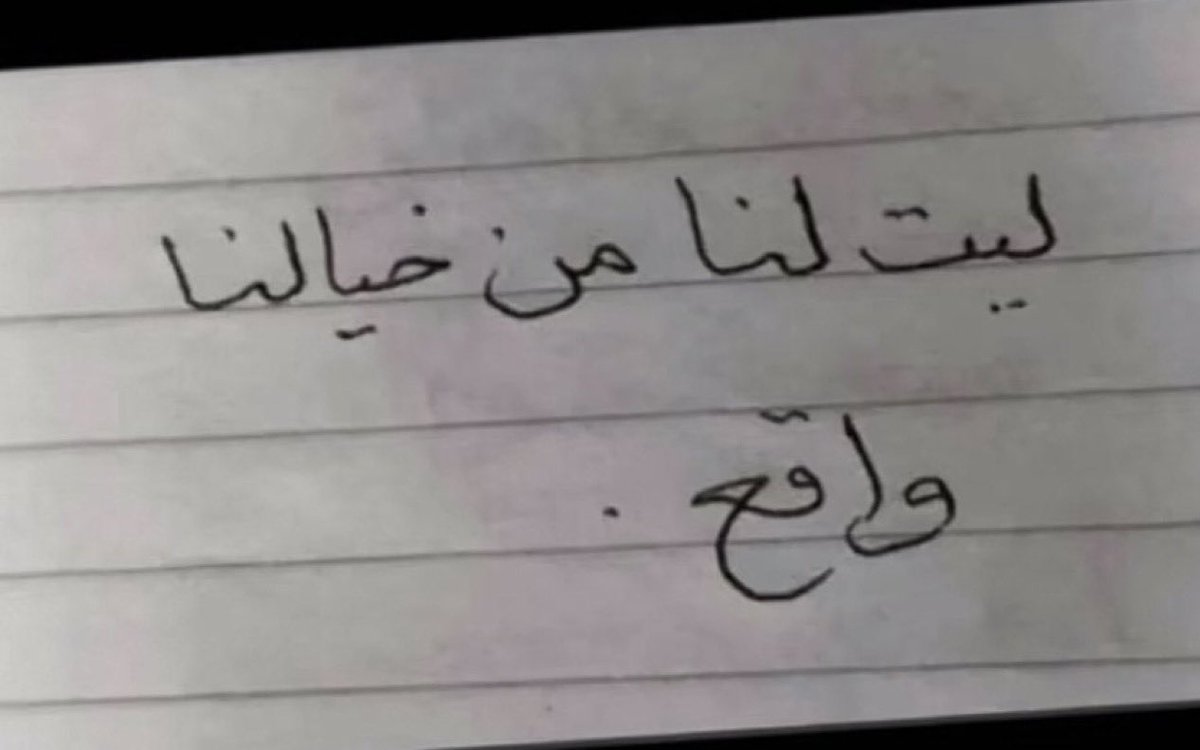 ليت لنا من خيالنا
واقع .